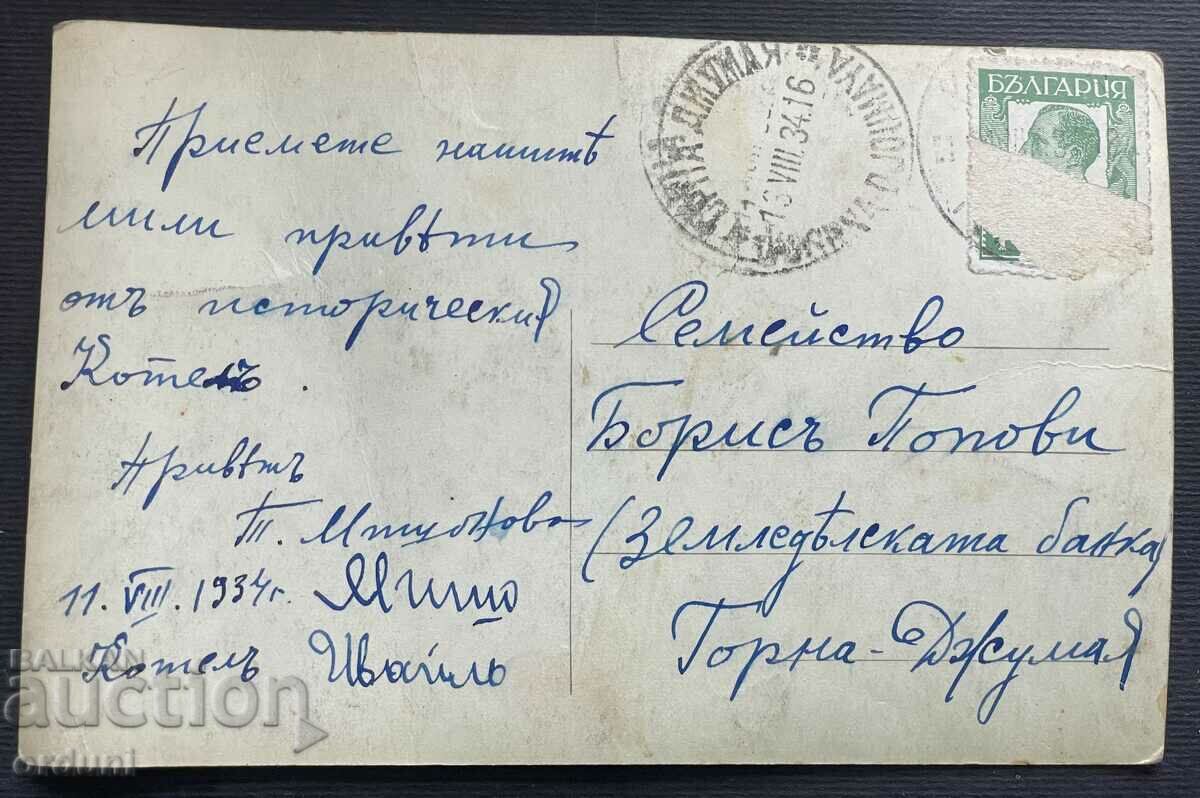 Приемете нашитѣ
мили привѣти
отъ исторически
Котелъ.
Привѣтъ
Т.
11.VIII.1934г. Мишо
Котелъ Ивайло
ГОРНА ДЖУМАЯ
13.VIII.34.16
БЪЛГАРИЯ
Семейство
Борисъ Попови
(Земледѣлската банка)
Горна-Джумая
BALKAN
auction
orduni